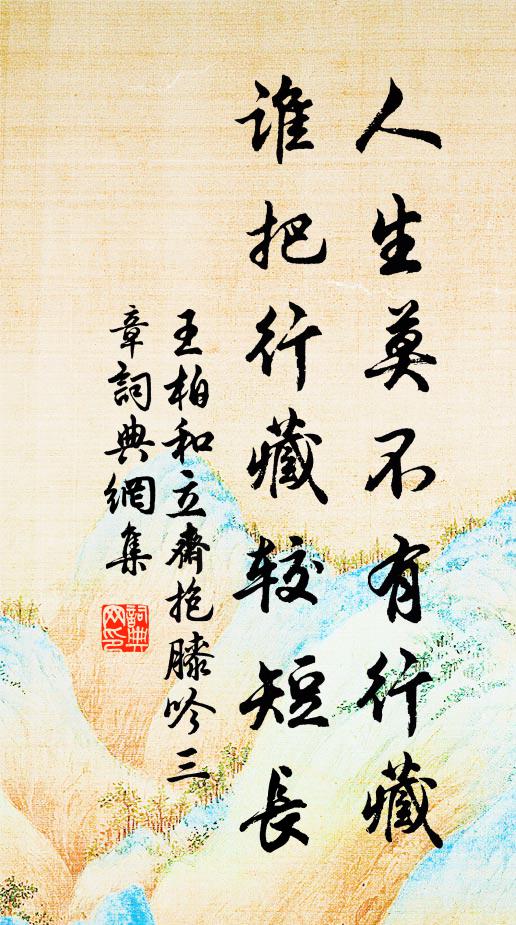 人生莫不有行藏
谁把行藏较短長
王柏和立齋抱膝吟三
章詞典網集
詞典
网印